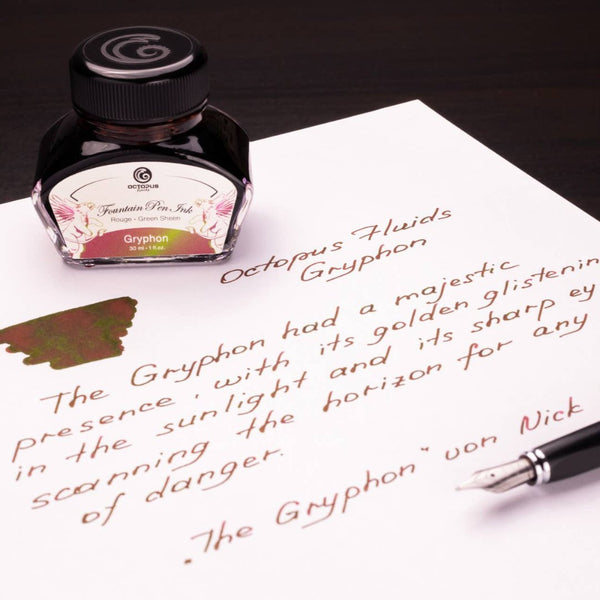 OCTOPUS
FLUIDS
Fountain Pen Ink
Rouge - Green Sheen
Gryphon
30 ml • 1 fl oz.
Octopus Fluids
Gryphon
The Gryphon had a majestic
presence, with its golden glistenin
in the sunlight and its sharp ey
scanning the horizon for any
of danger.
"The Gryphon" von Nick